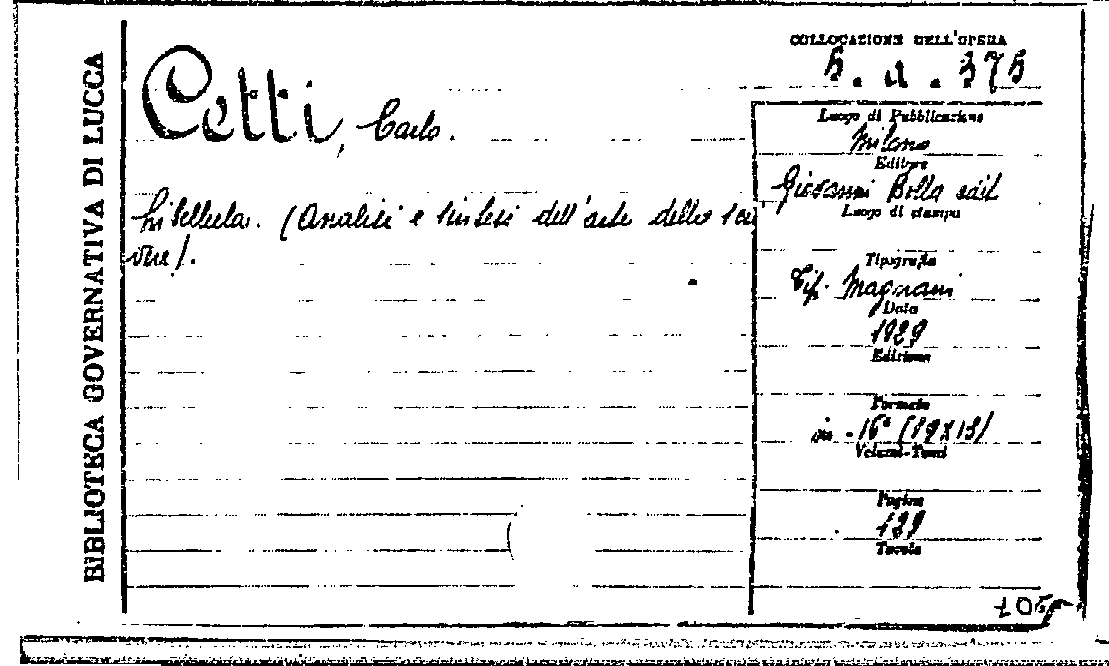 BIBLIOTECA GOVERNATIVA DI LUCCA
Cetti, Carlo.
(Analisi e sintesi dell'arte dello scri
vere).
COLLOCAZIONE DELL'OPERA
5. d. 375
Luogo di Pubblicazione
Milano
Editore
Giovanni Bolla edit
Luogo di stampa
Tipografia
Tip. Magnani
Data
1929
Edizione
Formato
in-16° (19x13)
Volumi-Tomi
Pagine
129
Tavole